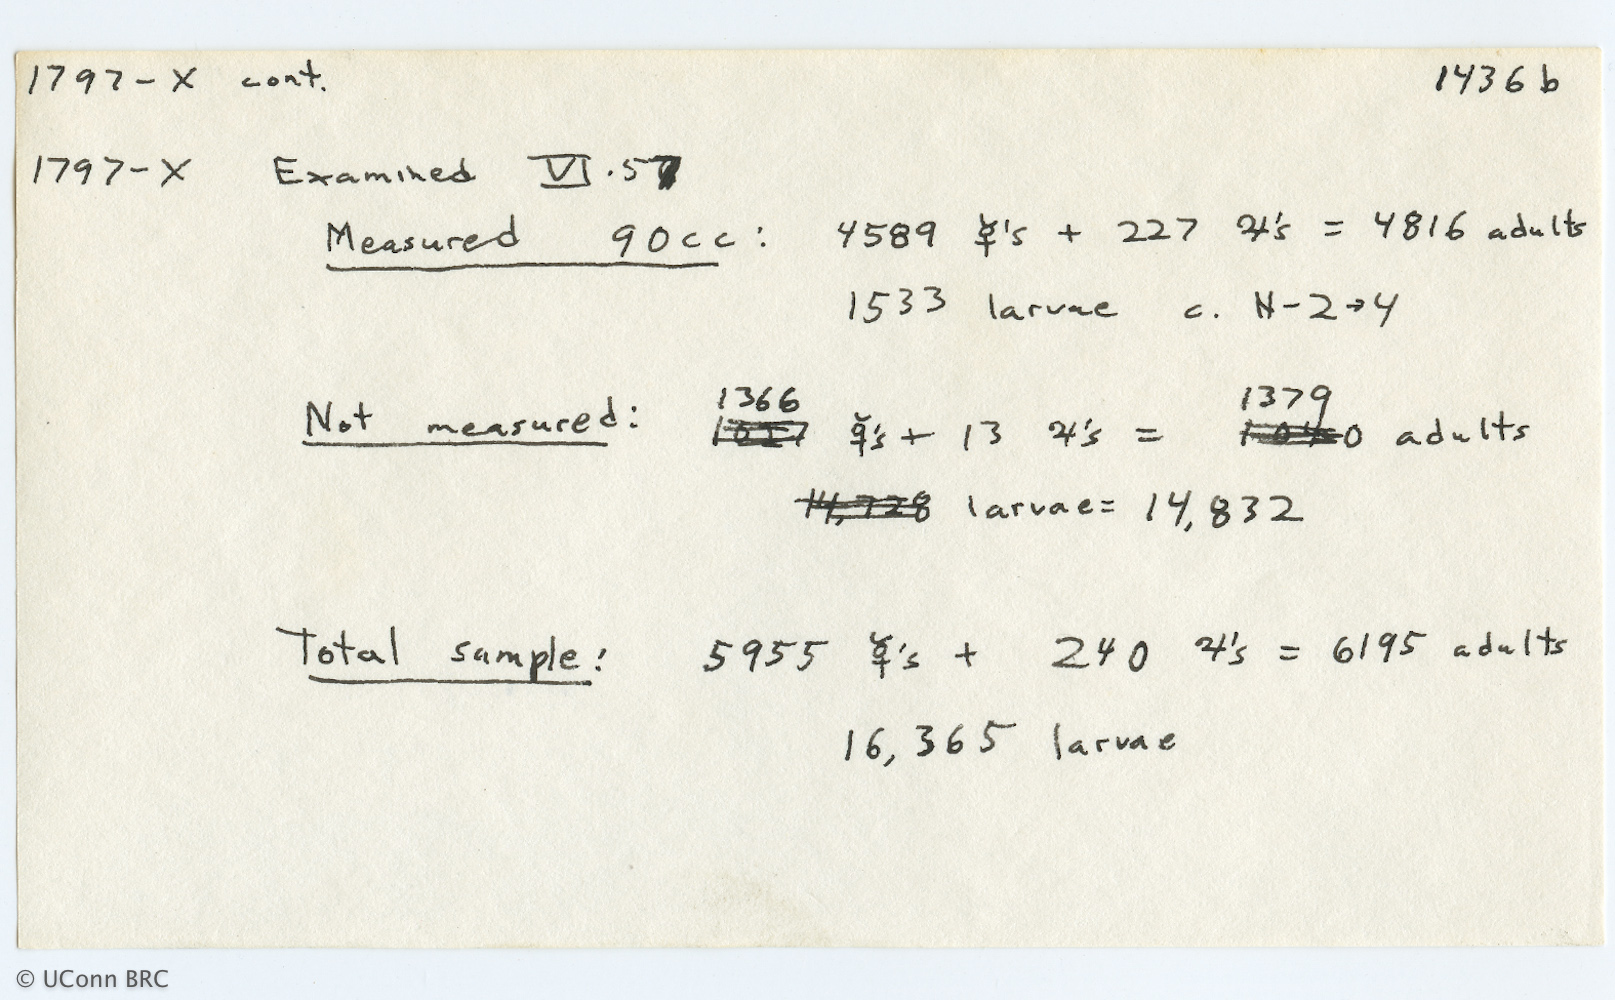 1797-X cont. 1436b
1797-X Examined VI.57
Measured 90cc: 4589 ☿'s + 227 ♃'s = 4816 adults
1533 larvae c. N-2→4
1366 1379
Not measured: ☿'s + 13 ♃'s = adults
14,728 larvae = 14,832
Total sample: 5955 ☿'s + 240 ♃'s = 6195 adults
16,365 larvae
© UConn BRC